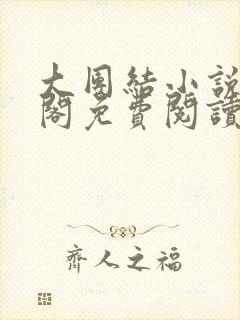 大團結小說
閣免費閱讀
齊人之福